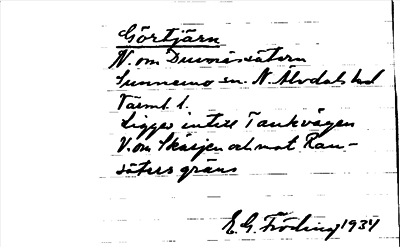 Görtjärn
N. om Duvåssätern
Sunnemo sn. N. Älvdals hd
Värml. l.
Ligger intill Tankvägen
V. om Skärjen och mot Ran-
säters gräns
E. G. Fröding 1934